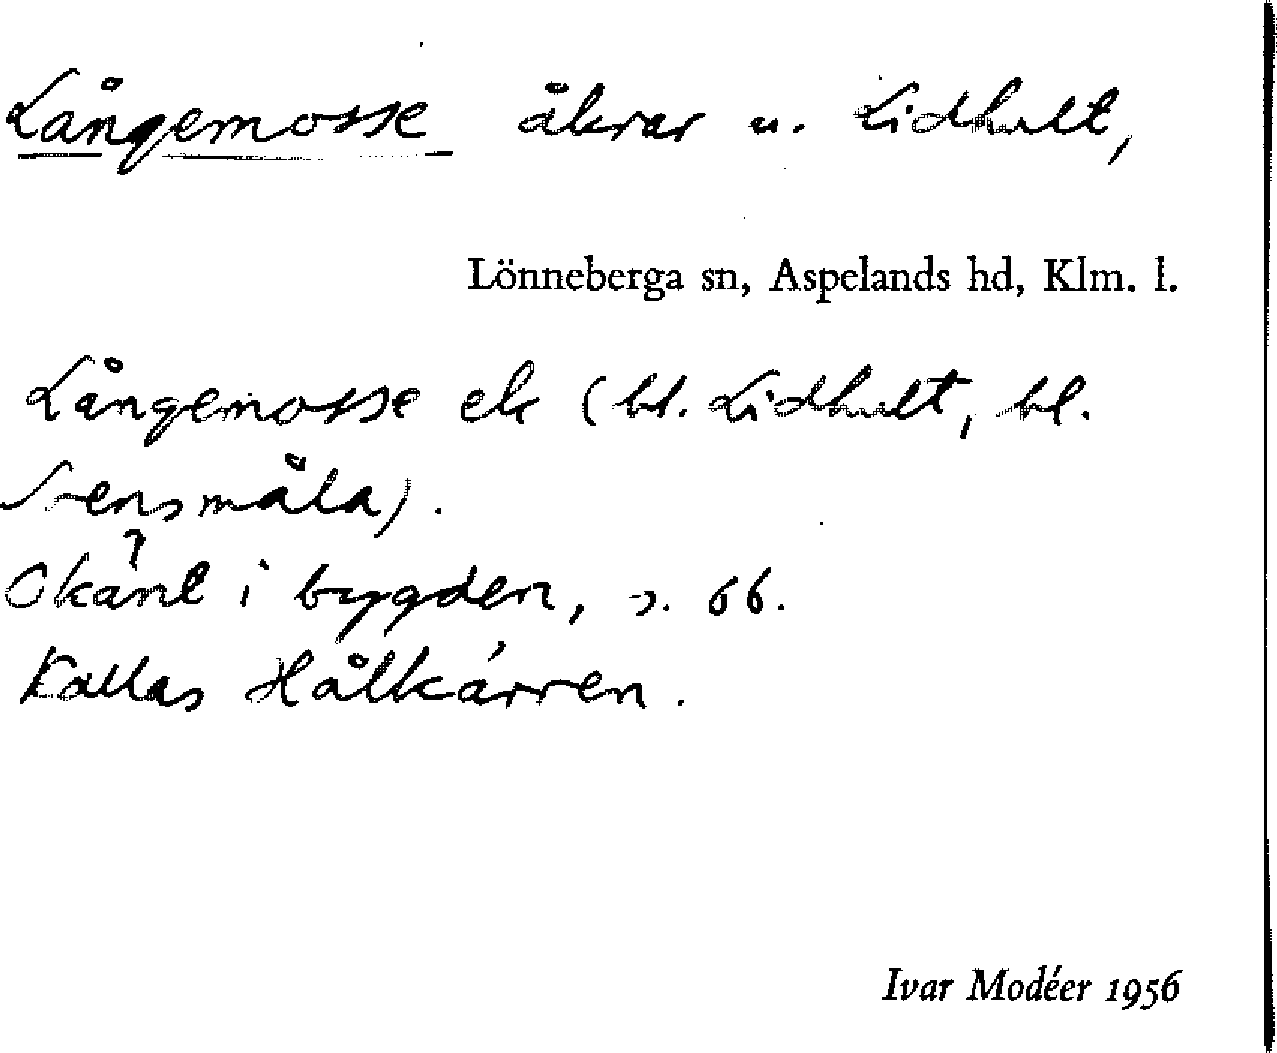 Långemosse åkrar u. Lidhult,
Lönneberga sn, Aspelands hd, Klm. l.
Långemosse ek (bl. Lidhult, bl.
Svensmåla).
Okänt i bygden, s. 66.
Kallas Hålkärren.
Ivar Modéer 1956